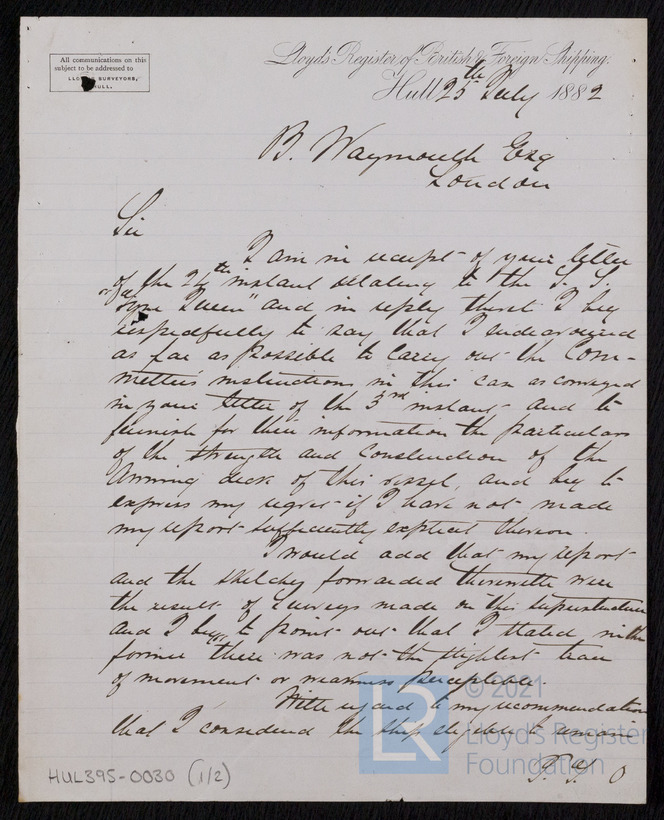 All communications on this
subject to be addressed to
LLOYD'S SURVEYORS,
HULL.
Lloyd's Register of British & Foreign Shipping.
Hull 25th July 1882
B. Waymouth Esq
London
Sir
I am in receipt of your letter
of the 24th instant relating to the S.S.
Tyne Queen" and in reply thereto I beg
respectfully to say that I endeavoured
as far as possible to carry out the Com-
mittee's instructions in this case as conveyed
in your letter of the 3rd instant and to
furnish for their information the particulars
of the strength and construction of the
Awning deck of this vessel, and beg to
express my regret if I have not made
my report sufficiently explicit thereon.
I would add that my report
and the sketches forwarded therewith were
the result of surveys made on this superstructure
and I beg to point out that I stated in the
former there was not the slightest trace
of movement or weakness perceptible.
With regard to my recommendation
that I considered the ship eligible to remain
P.T.O
HUL395-0030 (1/2)
© 2021
Lloyd's Register
Foundation
LR